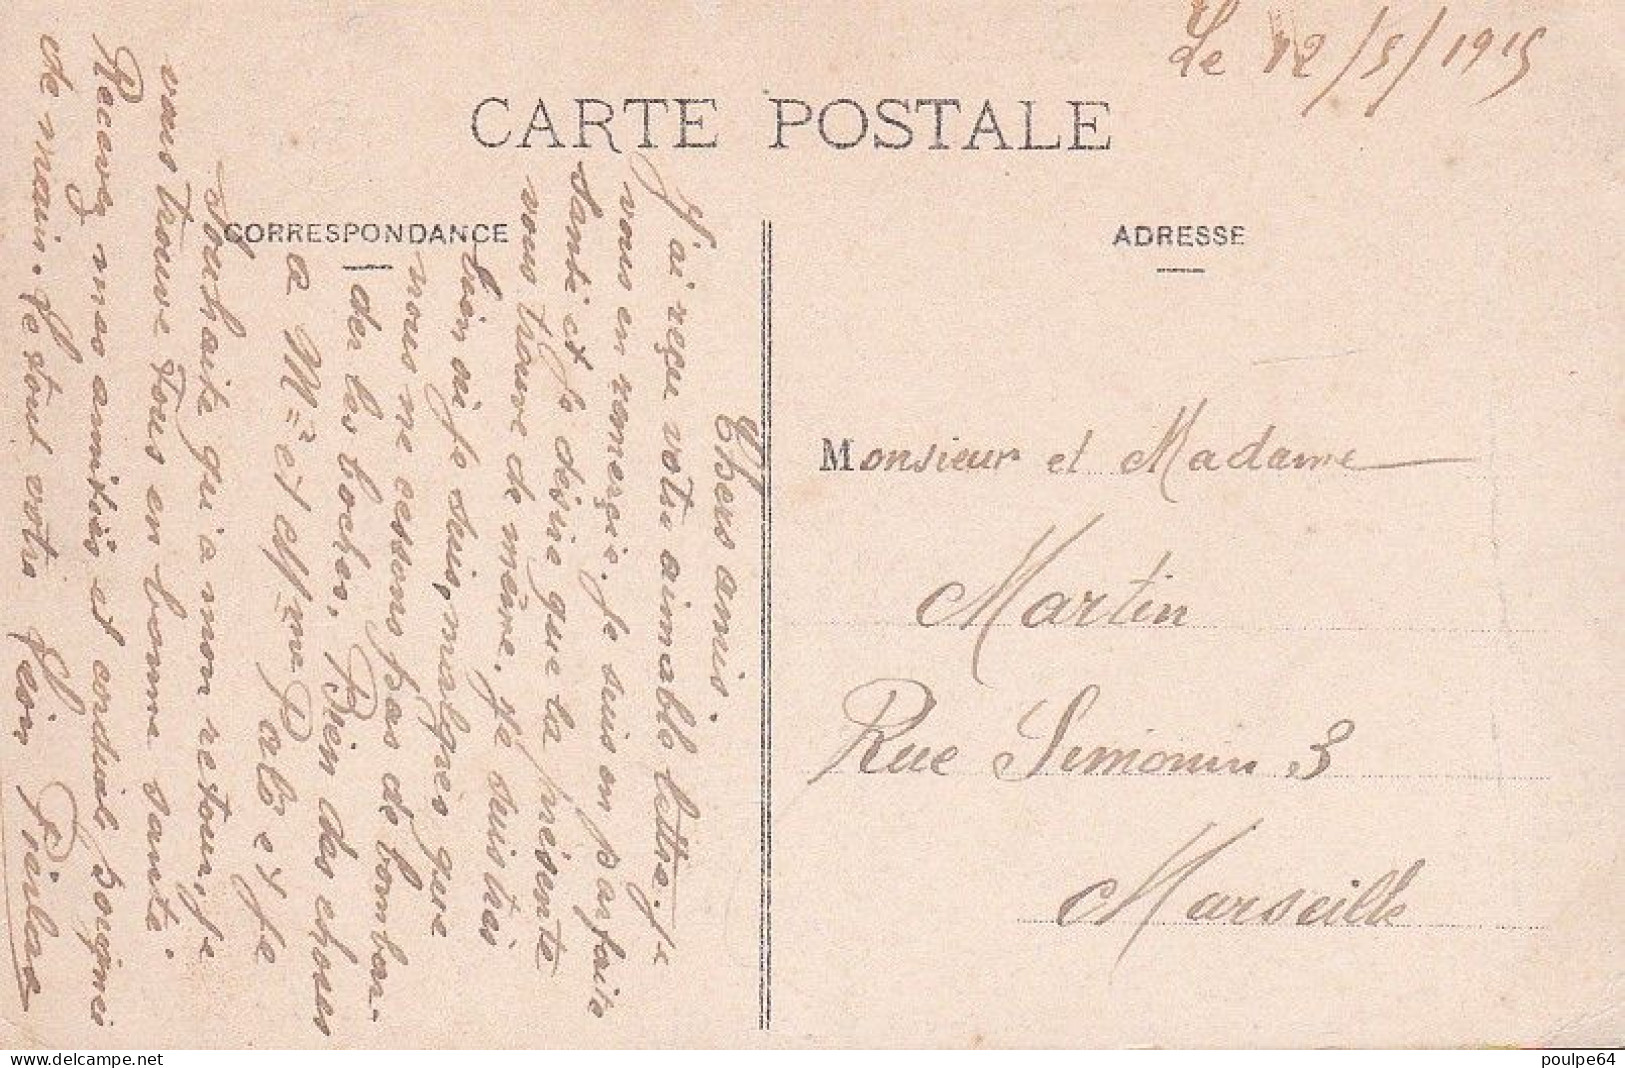 Le 12/5/1915
CARTE POSTALE
CORRESPONDANCE
ADRESSE
Chers amis.
J'ai reçu votre aimable lettre. je
vous en remerçie. je suis en parfaite
santé et je désire que la présente
vous trouve de même. je suis très
bien où je suis, malgrés que
nous ne cessons pas de bombar-
der les boches, Bien des choses
a Mr et Mme et je
souhaite qu'a mon retour, je
vous trouve tous en bonne santé.
Recevez mes amitiés et cordial poigné
de main. je tout votre
Monsieur et Madame
Martin
Rue Simonin 3
Marseille
delcampe.net
poulpe64